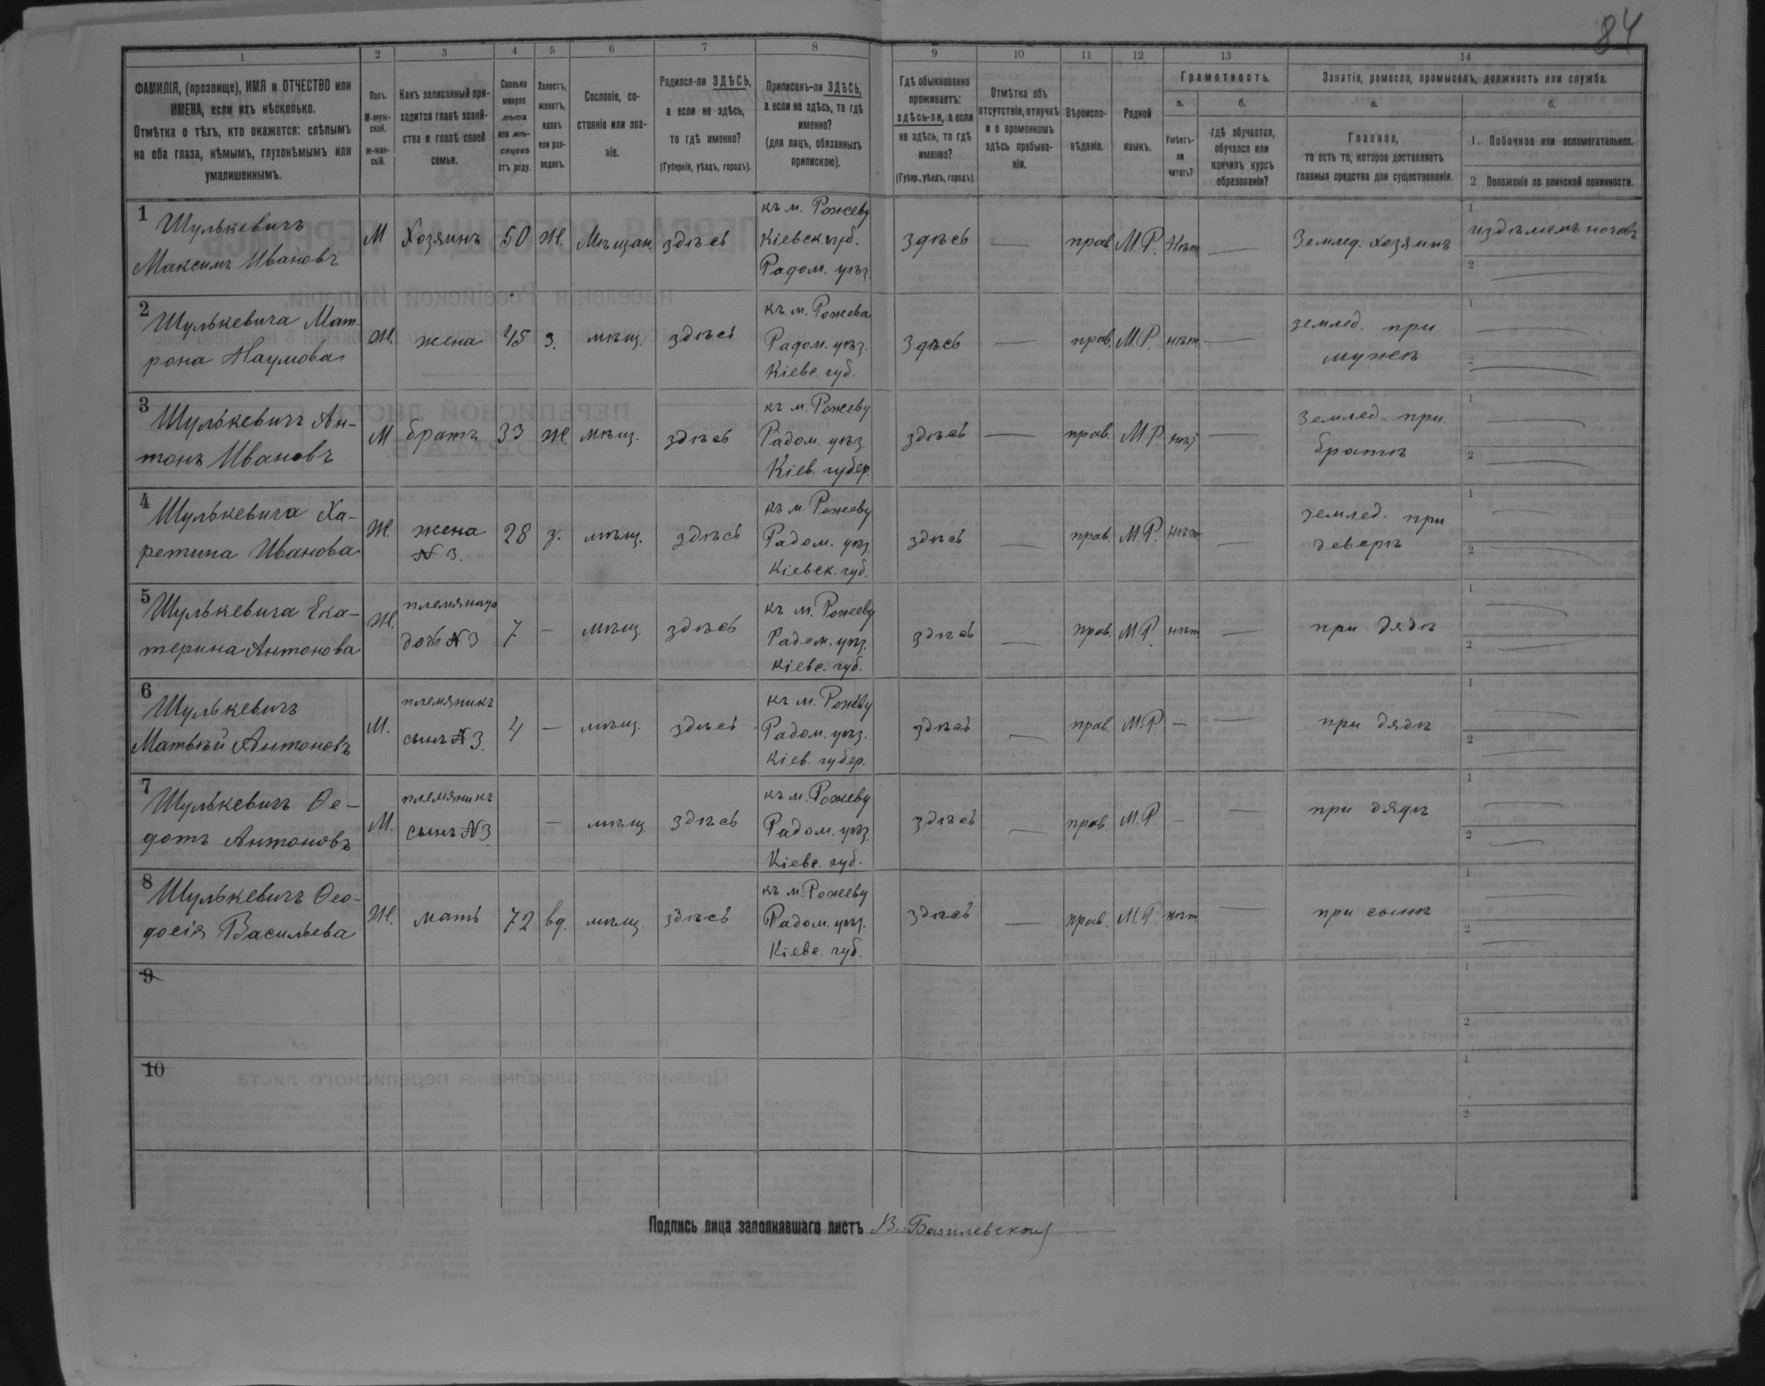 84
1 2 3 4 5 6 7 8 9 10 11 12 13 14
ФАМИЛІЯ, (прозвище), ИМЯ и ОТЧЕСТВО или
ИМЕНА, если ихъ нѣсколько.
Отмѣтка о тѣхъ, кто окажется: слѣпымъ
на оба глаза, нѣмымъ, глухонѣмымъ или
умалишеннымъ.
Полъ.
М-муж-
ской.
ж-жен-
скій.
Какъ записанный при-
ходится главѣ хозяй-
ства и главѣ своей
семьи.
Сколько
минуло
лѣтъ
или мѣ-
сяцевъ
отъ роду.
Холостъ,
женатъ,
вдовъ
или раз-
веденъ.
Сословіе, со-
стояніе или зва-
ніе.
Родился-ли ЗДѢСЬ,
а если не здѣсь,
то гдѣ именно?
(Губернія, уѣздъ, городъ).
Приписанъ-ли ЗДѢСЬ,
а если не здѣсь, то гдѣ
именно?
(для лицъ, обязанныхъ
припискою).
Гдѣ обыкновенно
проживаетъ:
здѣсь-ли, а если
не здѣсь, то гдѣ
именно?
(Губер., уѣздъ, городъ).
Отмѣтка объ
отсутствіи, отлучкѣ
и о временномъ
здѣсь пребыва-
ніи.
Вѣроиспо-
вѣданіе.
Родной
языкъ.
Грамотность.
а.
Умѣетъ-
ли
читать?
б.
гдѣ обучается,
обучался или
кончилъ курсъ
образованія?
Занятія, ремесло, промыселъ, должность или служба.
а.
Главное,
то есть то, которое доставляетъ
главныя средства для существованія.
б.
1. Побочное или вспомогательное.
2 Положеніе по воинской повинности.
1 Шулькевичъ
Максимъ Ивановъ
М Хозяинъ 50 Ж. Мѣщан. здѣсь
къ м. Рожеву
Кіевск. губ.
Радом. уѣз.
здѣсь — прав. М.Р. Нѣт — Землед. хозяинъ
1
2 —
2 Шулькевича Мат-
рона Наумова
Ж. жена 45 з. мѣщ. здѣсь
къ м. Рожева
Радом. уѣз.
Кіевс. губ.
здѣсь — прав. М.Р. нѣт —
землед. при
мужѣ
1 —
2 —
3 Шулькевичъ Ан-
тонъ Ивановъ
М братъ 33 Ж. мѣщ. здѣсь
къ м. Рожеву
Радом. уѣз.
Кіев. губер.
здѣсь — прав. М.Р. нѣт —
Землед. при
братѣ
1 —
2 —
4 Шулькевича Ха-
ретина Иванова
Ж. жена
№ 3.
28 з. мѣщ. здѣсь
къ м. Рожеву
Радом. уѣз.
Кіевск. губ.
здѣсь — прав. М.Р. нѣт —
землед. при
деверѣ
1 —
2 —
5 Шулькевича Ека-
терина Антонова
Ж. племяница
дочь №3
7 — мѣщ. здѣсь
къ м. Рожеву
Радом. уѣз.
Кіевс. губ.
здѣсь — прав. М.Р. нѣт — при дядѣ
1 —
2 —
6 Шулькевичъ
Матвѣй Антоновъ
М. племяникъ
сынъ №3.
4 — мѣщ. здѣсь
къ м. Рожеву
Радом. уѣз.
Кіев. губер.
здѣсь — прав. М.Р. — — при дядѣ
1 —
2 —
7 Шулькевичъ Ѳе-
дотъ Антоновъ
М. племяникъ
сынъ №3.
— мѣщ. здѣсь
къ м. Рожеву
Радом. уѣз.
Кіевс. губ.
здѣсь — прав. М.Р. — — при дядѣ
1 —
2 —
8 Шулькевичъ Ѳео-
досія Васильева
Ж. мать 72 вд. мѣщ. здѣсь
къ м. Рожеву
Радом. уѣз.
Кіевс. губ.
здѣсь — прав. М.Р. нѣт — при сынѣ
1 —
2 —
9
1
2
10
1
2
Подпись лица заполнявшаго листъ В. Базилевской